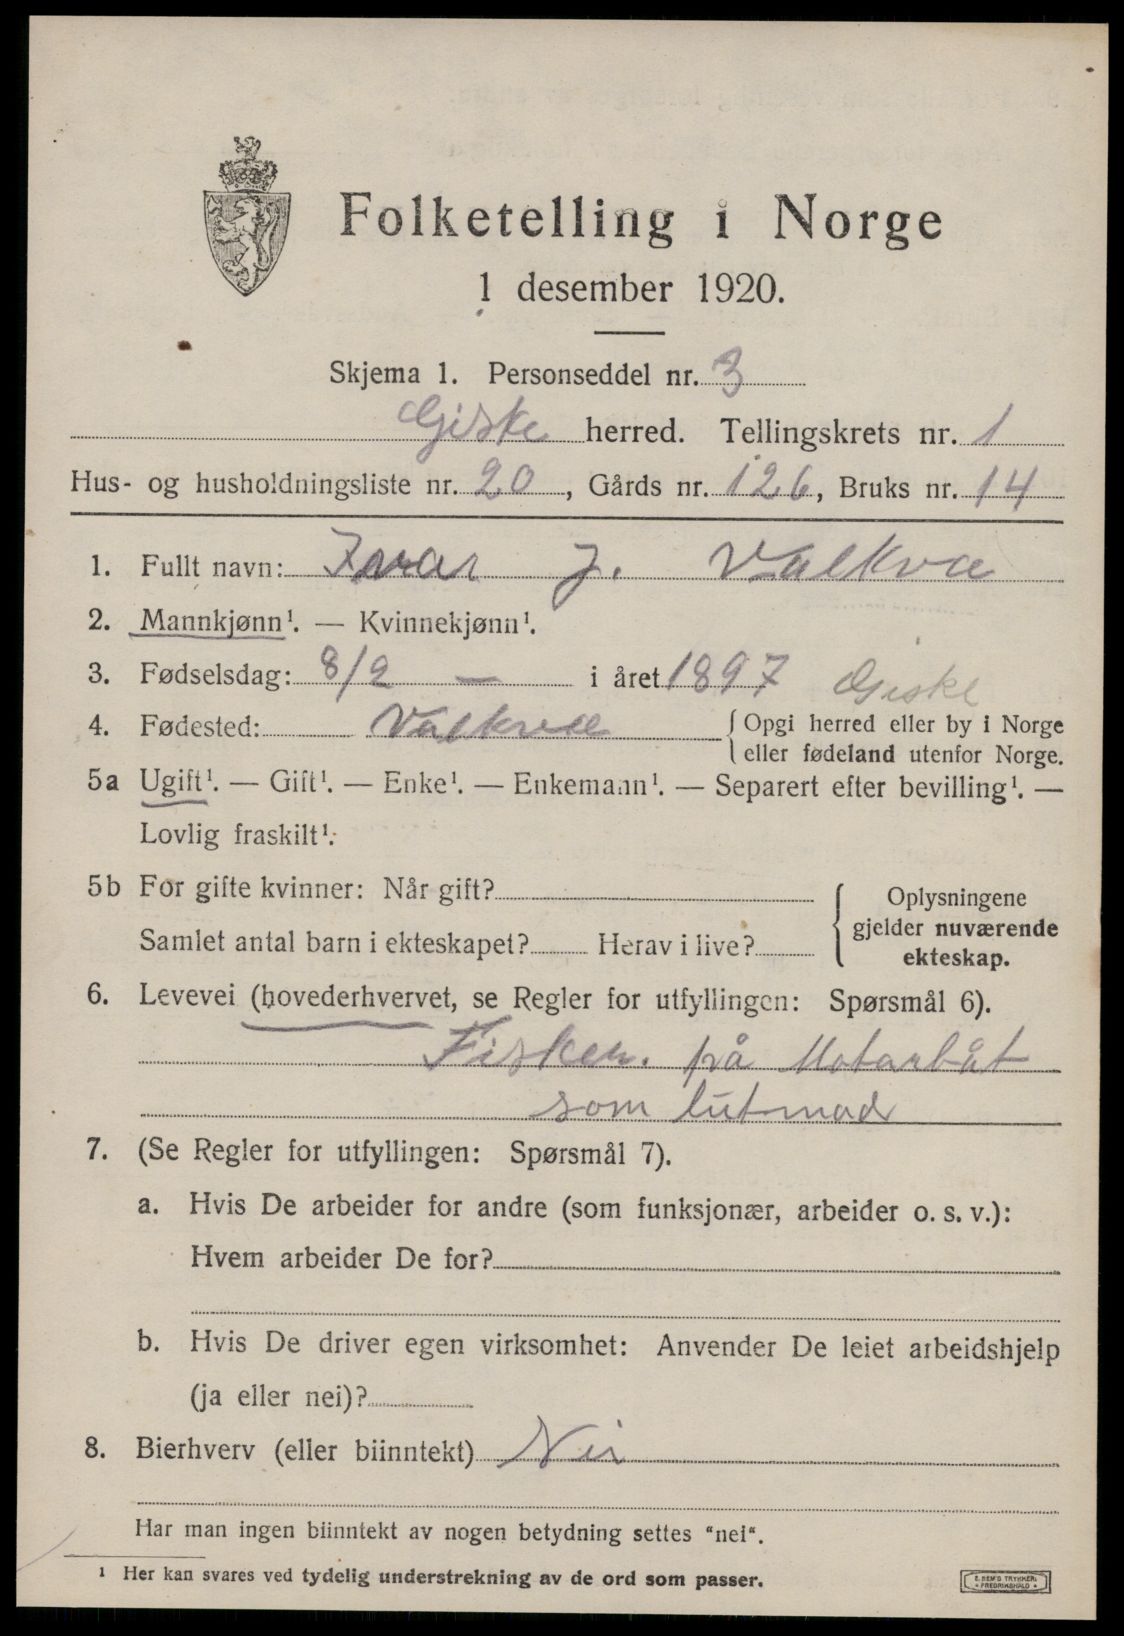 Folketelling i Norge
1 desember 1920.
Skjema 1. Personseddel nr. 3
Giske herred. Tellingskrets nr. 1
Hus- og husholdningsliste nr. 20, Gårds nr. 126, Bruks nr. 14
1. Fullt navn: Ivar J. Valkvæ
2. Mannkjønn¹. — Kvinnekjønn¹.
3. Fødselsdag: 8/2 — i året 1897 Giske
4. Fødested: Valkvæ { Opgi herred eller by i Norge
eller fødeland utenfor Norge.
5a Ugift¹. — Gift¹. — Enke¹. — Enkemann¹. — Separert efter bevilling¹. —
Lovlig fraskilt¹.
5b For gifte kvinner: Når gift?
Samlet antal barn i ekteskapet? Herav i live?
Oplysningene
gjelder nuværende
ekteskap.
6. Levevei (hovederhvervet, se Regler for utfyllingen: Spørsmål 6).
Fisker. på Motarbåt
som lutmad
7. (Se Regler for utfyllingen: Spørsmål 7).
a. Hvis De arbeider for andre (som funksjonær, arbeider o. s. v.):
Hvem arbeider De for?
b. Hvis De driver egen virksomhet: Anvender De leiet arbeidshjelp
(ja eller nei)?
8. Bierhverv (eller biinntekt) Nei
Har man ingen biinntekt av nogen betydning settes "nei".
¹ Her kan svares ved tydelig understrekning av de ord som passer.
E. SEM'S TRYKKERI
FREDRIKSHALD